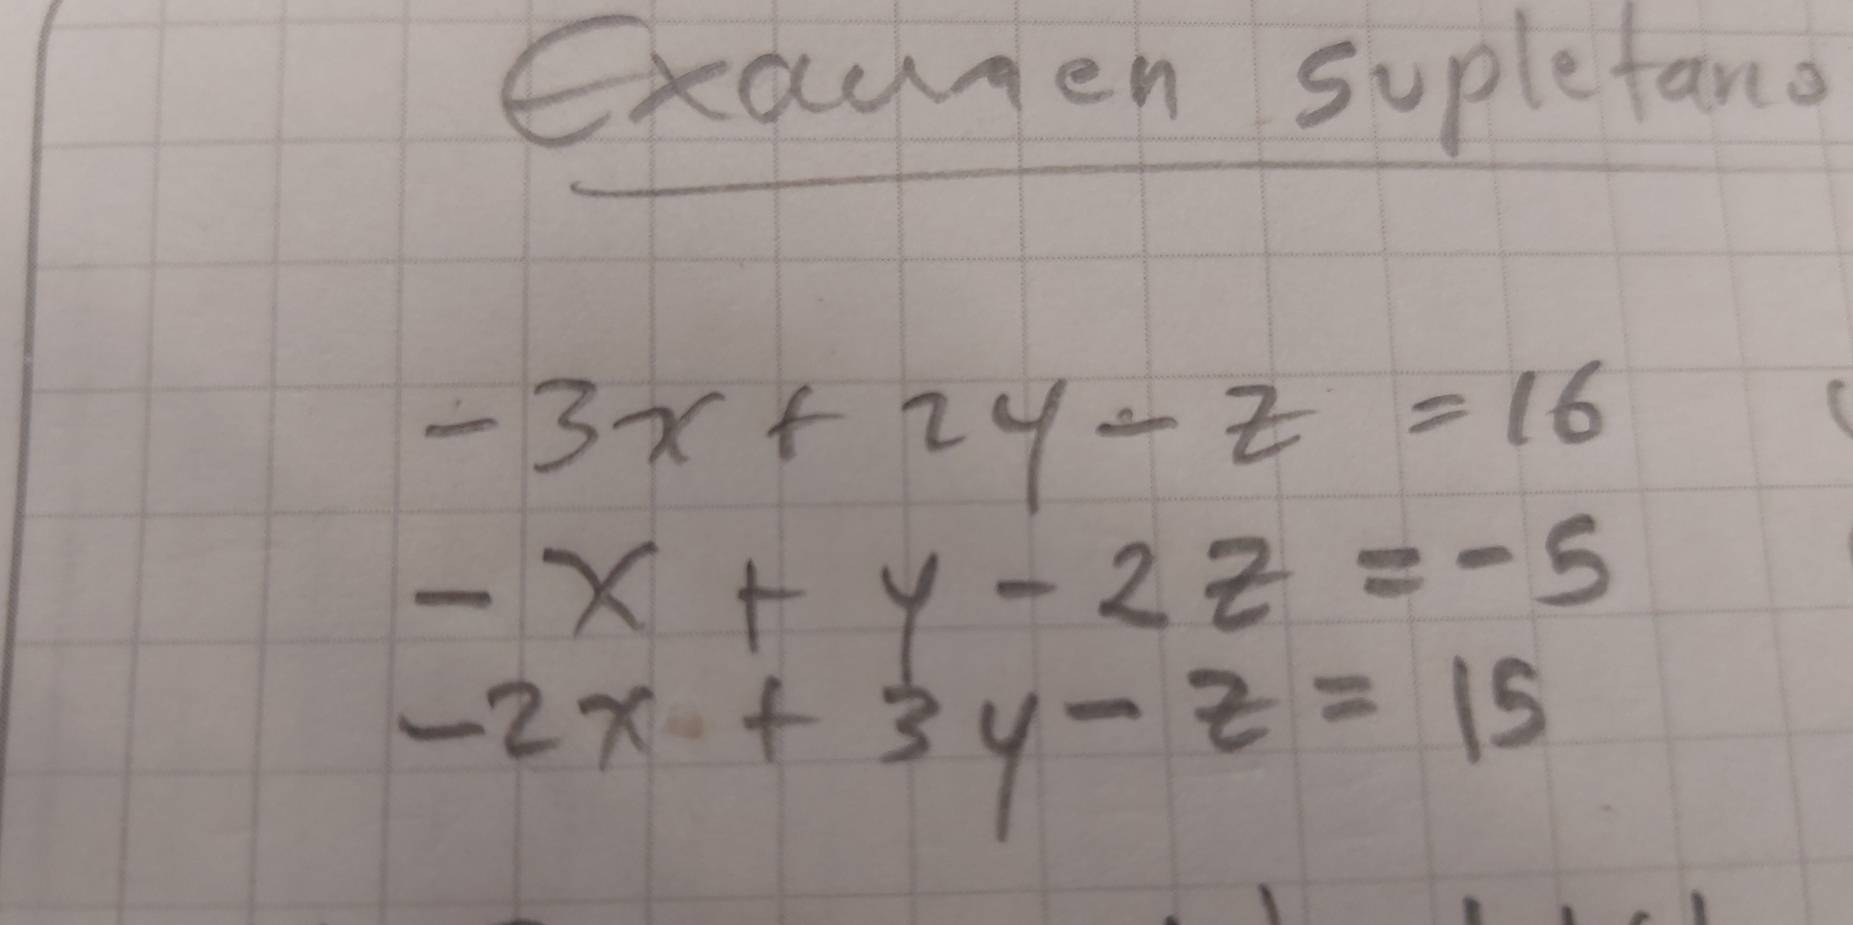 Examen supletario
-3x + 2y - z = 16
-x + y - 2z = -5
-2x + 3y - z = 15